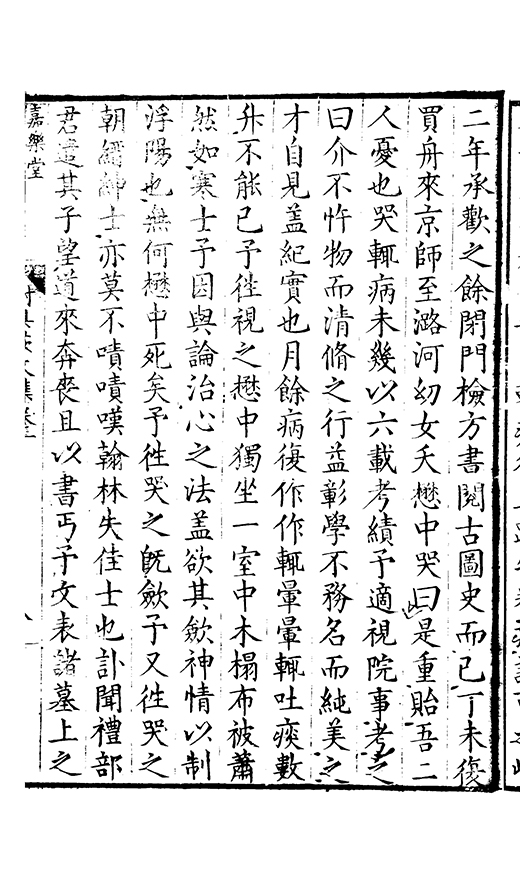 二年承歡之餘閉門檢方書閱古圖史而已丁未復
買舟來京師至潞河幼女夭懋中哭曰是重貽吾二
人憂也哭輒病未幾以六載考績予適視院事考之
曰介不忤物而清脩之行益彰學不務名而純美之
才自見盖紀實也月餘病復作作輒暈暈輒吐痰數
升不能已予徃視之懋中獨坐一室中木榻布被蕭
然如寒士予因與論治心之法盖欲其歛神情以制
浮陽也無何懋中死矣予徃哭之旣歛予又徃哭之
朝紳士亦莫不嘖嘖嘆翰林失佳士也訃聞禮部
君遣其子望道來奔喪且以書丐予文表諸墓上之
嘉樂堂
文集卷
八